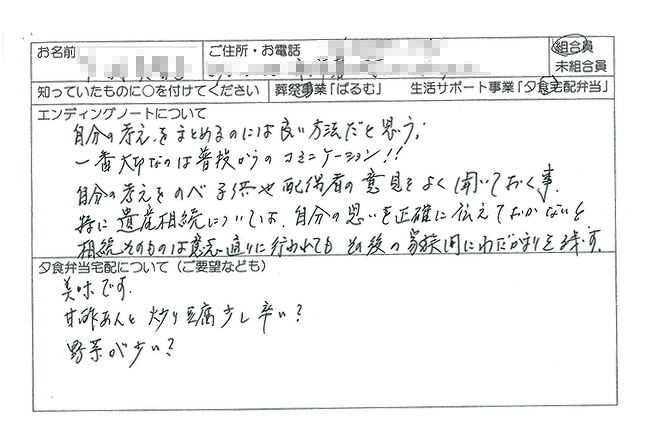 お名前
ご住所・お電話
組合員
未組合員
知っていたものに○を付けてください
葬祭事業「ぱるむ」
生活サポート事業「夕食宅配弁当」
エンディングノートについて
自分の考えをまとめるのには良い方法だと思う。
一番大切なのは普段からのコミニケーション!!
自分の考えをのべ子供や配偶者の意見をよく聞いておく事.
特に遺産相続については、自分の思いを正確に伝えておかないと
相続そのものは意志通りに行われてもその後の家族間にわだかまりを残す.
夕食弁当宅配について(ご要望なども)
美味です.
甘酢あんと炒り豆腐少し辛い?
野菜が少い?